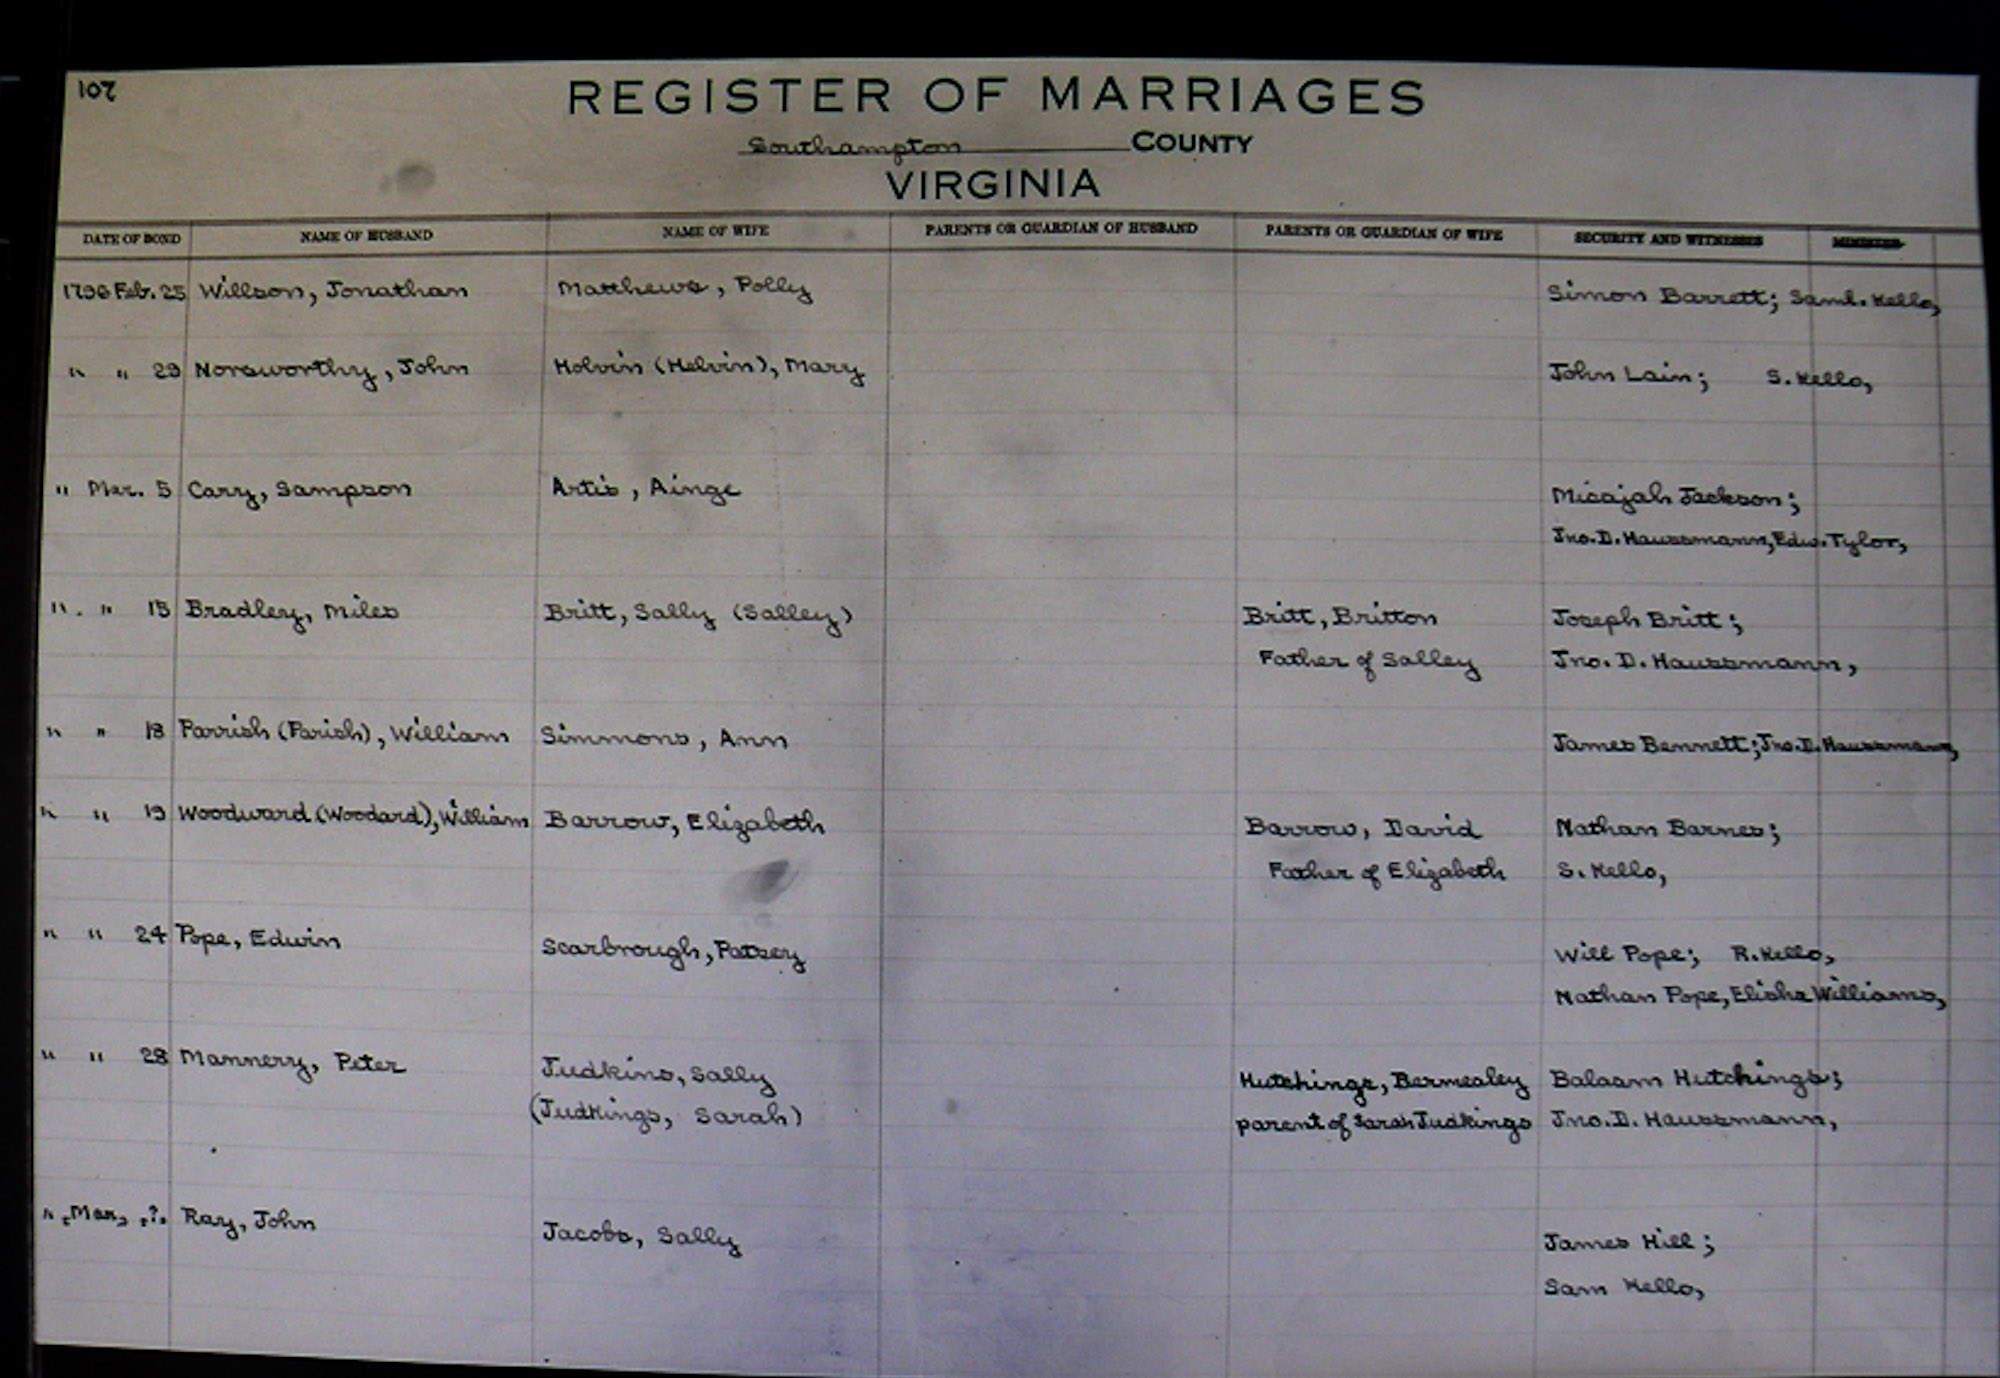 107
REGISTER OF MARRIAGES
Southampton COUNTY
VIRGINIA
DATE OF BOND NAME OF HUSBAND NAME OF WIFE PARENTS OR GUARDIAN OF HUSBAND PARENTS OR GUARDIAN OF WIFE SECURITY AND WITNESSES MINISTER
1796 Feb. 25 Willson, Jonathan Matthews, Polly Simon Barrett; Saml. Kello,
" " 29 Norsworthy, John Holvin (Helvin), Mary John Lain; S. Kello,
" Mar. 5 Cary, Sampson Artis, Ainge Micajah Jackson;
Jno. D. Haussmann, Edw. Tylor,
" " 15 Bradley, Miles Britt, Sally (Salley) Britt, Britton Joseph Britt;
Father of Salley Jno. D. Haussmann,
" " 18 Parrish (Parish), William Simmons, Ann James Bennett; Jno. D. Haussmann,
" " 19 Woodward (Woodard), William Barrow, Elizabeth Barrow, David Nathan Barnes;
Father of Elizabeth S. Kello,
" " 24 Pope, Edwin Scarbrough, Patsey Will Pope; R. Kello,
Nathan Pope, Elisha Williams,
" " 28 Mannery, Peter Judkins, Sally Hutchings, Bermealey Balaam Hutchings;
(Judkings, Sarah) parent of Sarah Judkings Jno. D. Haussmann,
" Mar, ? Ray, John Jacobs, Sally James Hill;
Sam Kello,